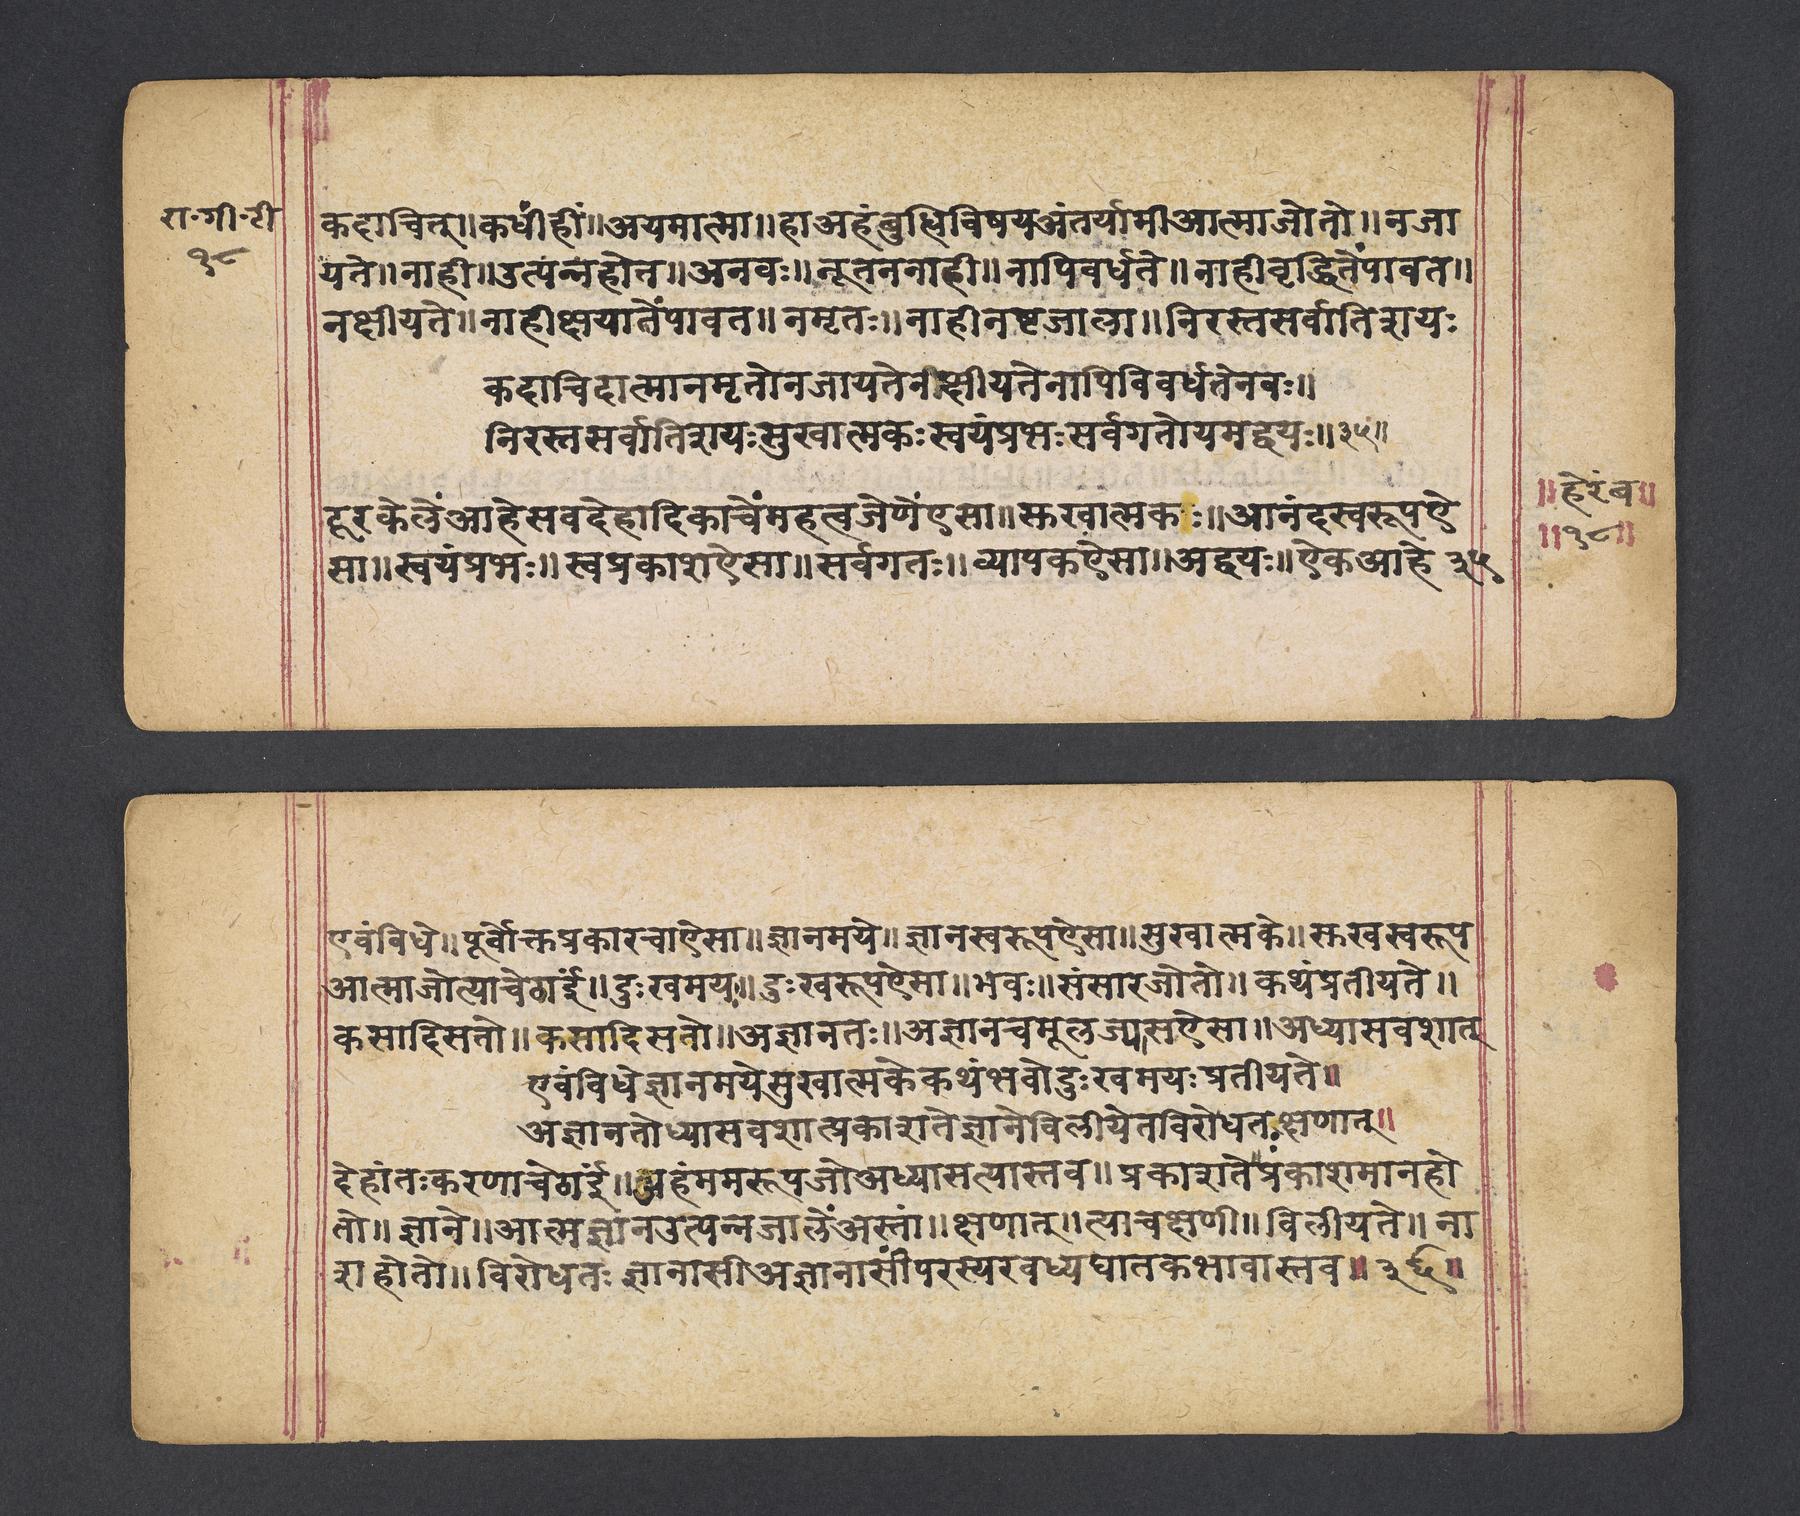 रा॰गी॰टी
१८
कदाचित्॥कधींहीं॥अयमात्मा॥हाअहंबुद्धिविषयअंतर्यामीआत्माजोतो॥नजा
यते॥नाही॥उत्पन्नहोत॥अनवः॥नूतननाही॥नापिवर्धते॥नाहीवृद्धितेंपावत॥
नक्षीयते॥नाहीक्षयातेंपावत॥नमृतः॥नाहीनष्टजाला॥निरस्तसर्वातिशयः
कदाचिदात्मानमृतोनजायतेनक्षीयतेनापिविवर्धतेनवः॥
निरस्तसर्वातिशयःसुखात्मकःस्वयंप्रभःसर्वगतोयमद्वयः॥३५॥
दूरकेलेंआहेसवदेहादिकाचेंमहत्वजेणेंएसा॥सुखात्मकः॥आनंदस्वरूपऐ
सा॥स्वयंप्रभः॥स्वप्रकाशऐसा॥सर्वगतः॥व्यापकऐसा॥अद्वयः॥ऐकआहे ३५
॥हेरंब॥
॥१८॥
एवंविधे॥पूर्वोक्तप्रकारचाऐसा॥ज्ञानमये॥ज्ञानस्वरूपऐसा॥सुखात्मके॥सुखस्वरूप
आत्माजोत्याचेठाईं॥दुःखमयः॥दुःखरूपऐसा॥भवः॥संसारजोतो॥कथंप्रतीयते॥
कसादिसतो॥कसादिसतो॥अज्ञानतः॥अज्ञानचमूलज्यासऐसा॥अध्यासवशात्
एवंविधेज्ञानमयेसुखात्मकेकथंभवोदुःखमयःप्रतीयते॥
अज्ञानतोध्यासवशात्प्रकाशतेज्ञानेविलीयेतविरोधतःक्षणात्॥
देहांतःकरणाचेठाईं॥अहंममरूपजोअध्यासत्यास्तव॥प्रकाशतेप्रकाशमानहो
तो॥ज्ञाने॥आत्मज्ञानउत्पन्नजालेंअस्तां॥क्षणात्॥त्याचक्षणी॥विलीयते॥ना
शहोतो॥विरोधतः ज्ञानासीअज्ञानासींपरस्परवध्यघातकभावास्तव॥३६॥